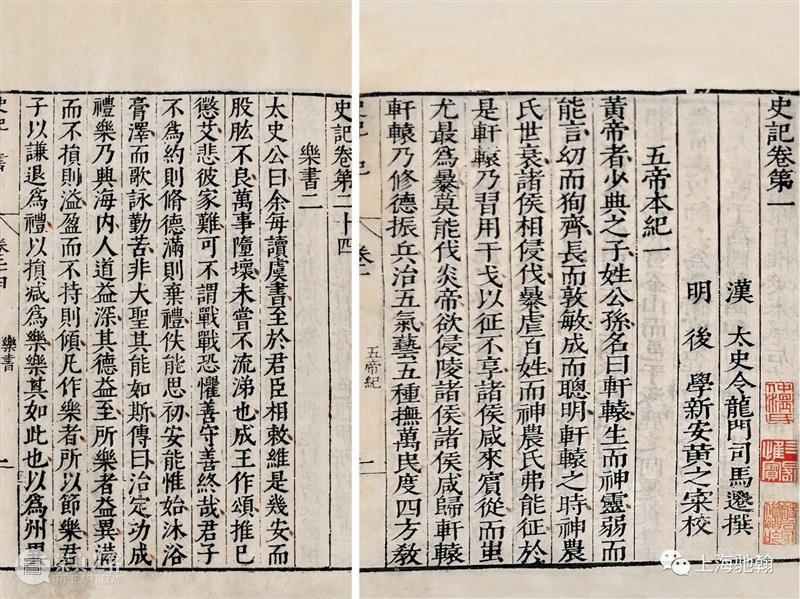 史記卷第一
漢　太史令龍門司馬遷撰
明　後　學新安黃之寀校
五帝本紀一
黃帝者少典之子姓公孫名曰軒轅生而神靈弱而
能言幼而狥齊長而敦敏成而聰明軒轅之時神農
氏世衰諸侯相侵伐暴虐百姓而神農氏弗能征於
是軒轅乃習用干戈以征不享諸侯咸來賓從而蚩
尤最爲暴莫能伐炎帝欲侵陵諸侯諸侯咸歸軒轅
軒轅乃修德振兵治五氣藝五種撫萬民度四方敎
史記　紀　卷一　五帝紀　一
史記卷第二十四
樂書二
太史公曰余每讀虞書至於君臣相敕維是幾安而
股肱不良萬事墮壞未嘗不流涕也成王作頌推已
懲艾悲彼家難可不謂戰戰恐懼善守善終哉君子
不爲約則脩德滿則棄禮佚能思初安能惟始沐浴
膏澤而歌詠勤苦非大聖其能如斯傳曰治定功成
禮樂乃興海內人道益深其德益至所樂者益異滿
而不損則溢盈而不持則傾凡作樂者所以節樂君
子以謙退爲禮以損减爲樂樂其如此也以爲州異
史記　書　卷二十四　樂書　一
上海驰翰